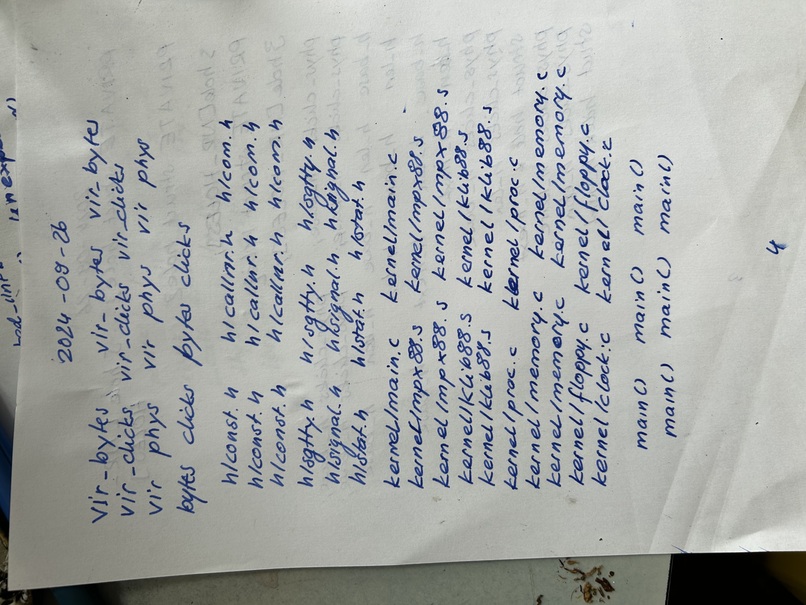 2024-09-26
vir_bytes vir_bytes vir_bytes
vir_clicks vir_clicks vir_clicks
vir phys vir phys vir phys
bytes clicks bytes clicks
h/const.h h/callnr.h h/com.h
h/const.h h/callnr.h h/com.h
h/const.h h/callnr.h h/com.h
h/sgtty.h h/sgtty.h h/sgtty.h
h/signal.h h/signal.h h/signal.h
h/stat.h h/stat.h h/stat.h
kernel/main.c kernel/main.c
kernel/mpx88.s kernel/mpx88.s
kernel/mpx88.s kernel/mpx88.s
kernel/klib88.s kernel/klib88.s
kernel/klib88.s kernel/klib88.s
kernel/proc.c kernel/proc.c
kernel/memory.c kernel/memory.c
kernel/memory.c kernel/memory.c
kernel/floppy.c kernel/floppy.c
kernel/clock.c kernel/clock.c
main() main() main()
main() main() main()
4